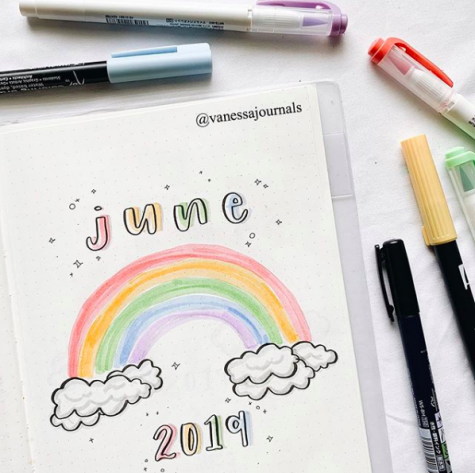 @vanessajournals
june
2019